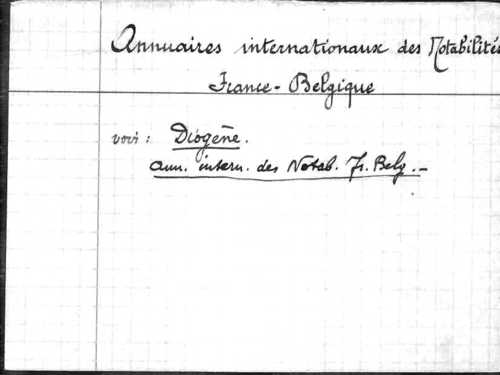 Annuaires internationaux des Notabilités
France - Belgique
voir : Diogène.
Ann. intern. des Notab. Fr. Belg. -